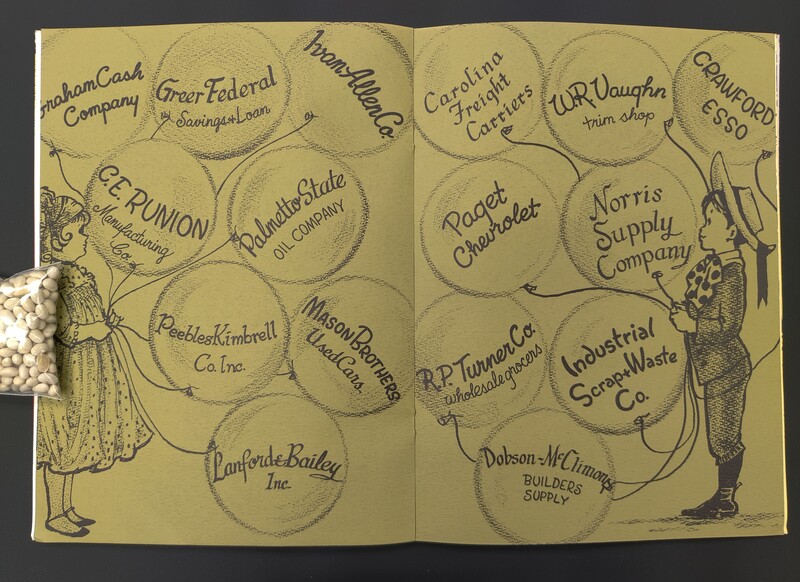 rahamCash
Company
Greer Federal
Savings & Loan
Ivan Allen Co
C.E. RUNION
Manufacturing
Co.
Palmetto State
OIL COMPANY
Peebles Kimbrell
Co. Inc.
MASON BROTHERS
Used Cars.
Lanford & Bailey
Inc.
Carolina
Freight
Carriers
W.R. Vaughn
trim shop
CRAWFORD
ESSO
Paget
Chevrolet
Norris
Supply
Company
R.P. Turner Co.
wholesale grocers
Industrial
Scrap & Waste
Co.
Dobson-McClimons
BUILDERS
SUPPLY